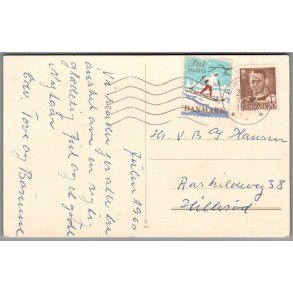 Jul
1960
DANMARK
DANMARK
Julen 1960
Vi sender jer alle de
ønsker om en rigtig
glædelig Jul og et godt
Nytaar
Tove og Børnene
Hr. V. B. G Hansen
Roskildevej 38
Hillerød